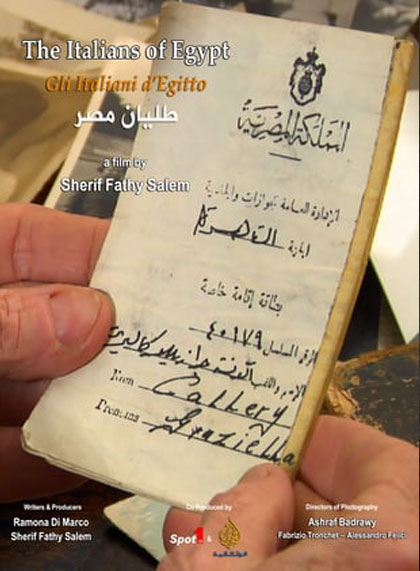 The Italians of Egypt
Gli Italiani d'Egitto
طليان مصر
a film by
Sherif Fathy Salem
المملكة المصرية
الإدارة العامة للجوازات والجنسية
القاهرة
بطاقة إقامة خاصة
الرقم المسلسل ٤٠١٧٩
الإسم واللقب
Nom Callery
Prénoms Graziella
Writers & Producers
Ramona Di Marco
Sherif Fathy Salem
Co Produced by
Spot1 &
الوثائقية
Directors of Photography
Ashraf Badrawy
Fabrizio Tronchet – Alessandro Felici